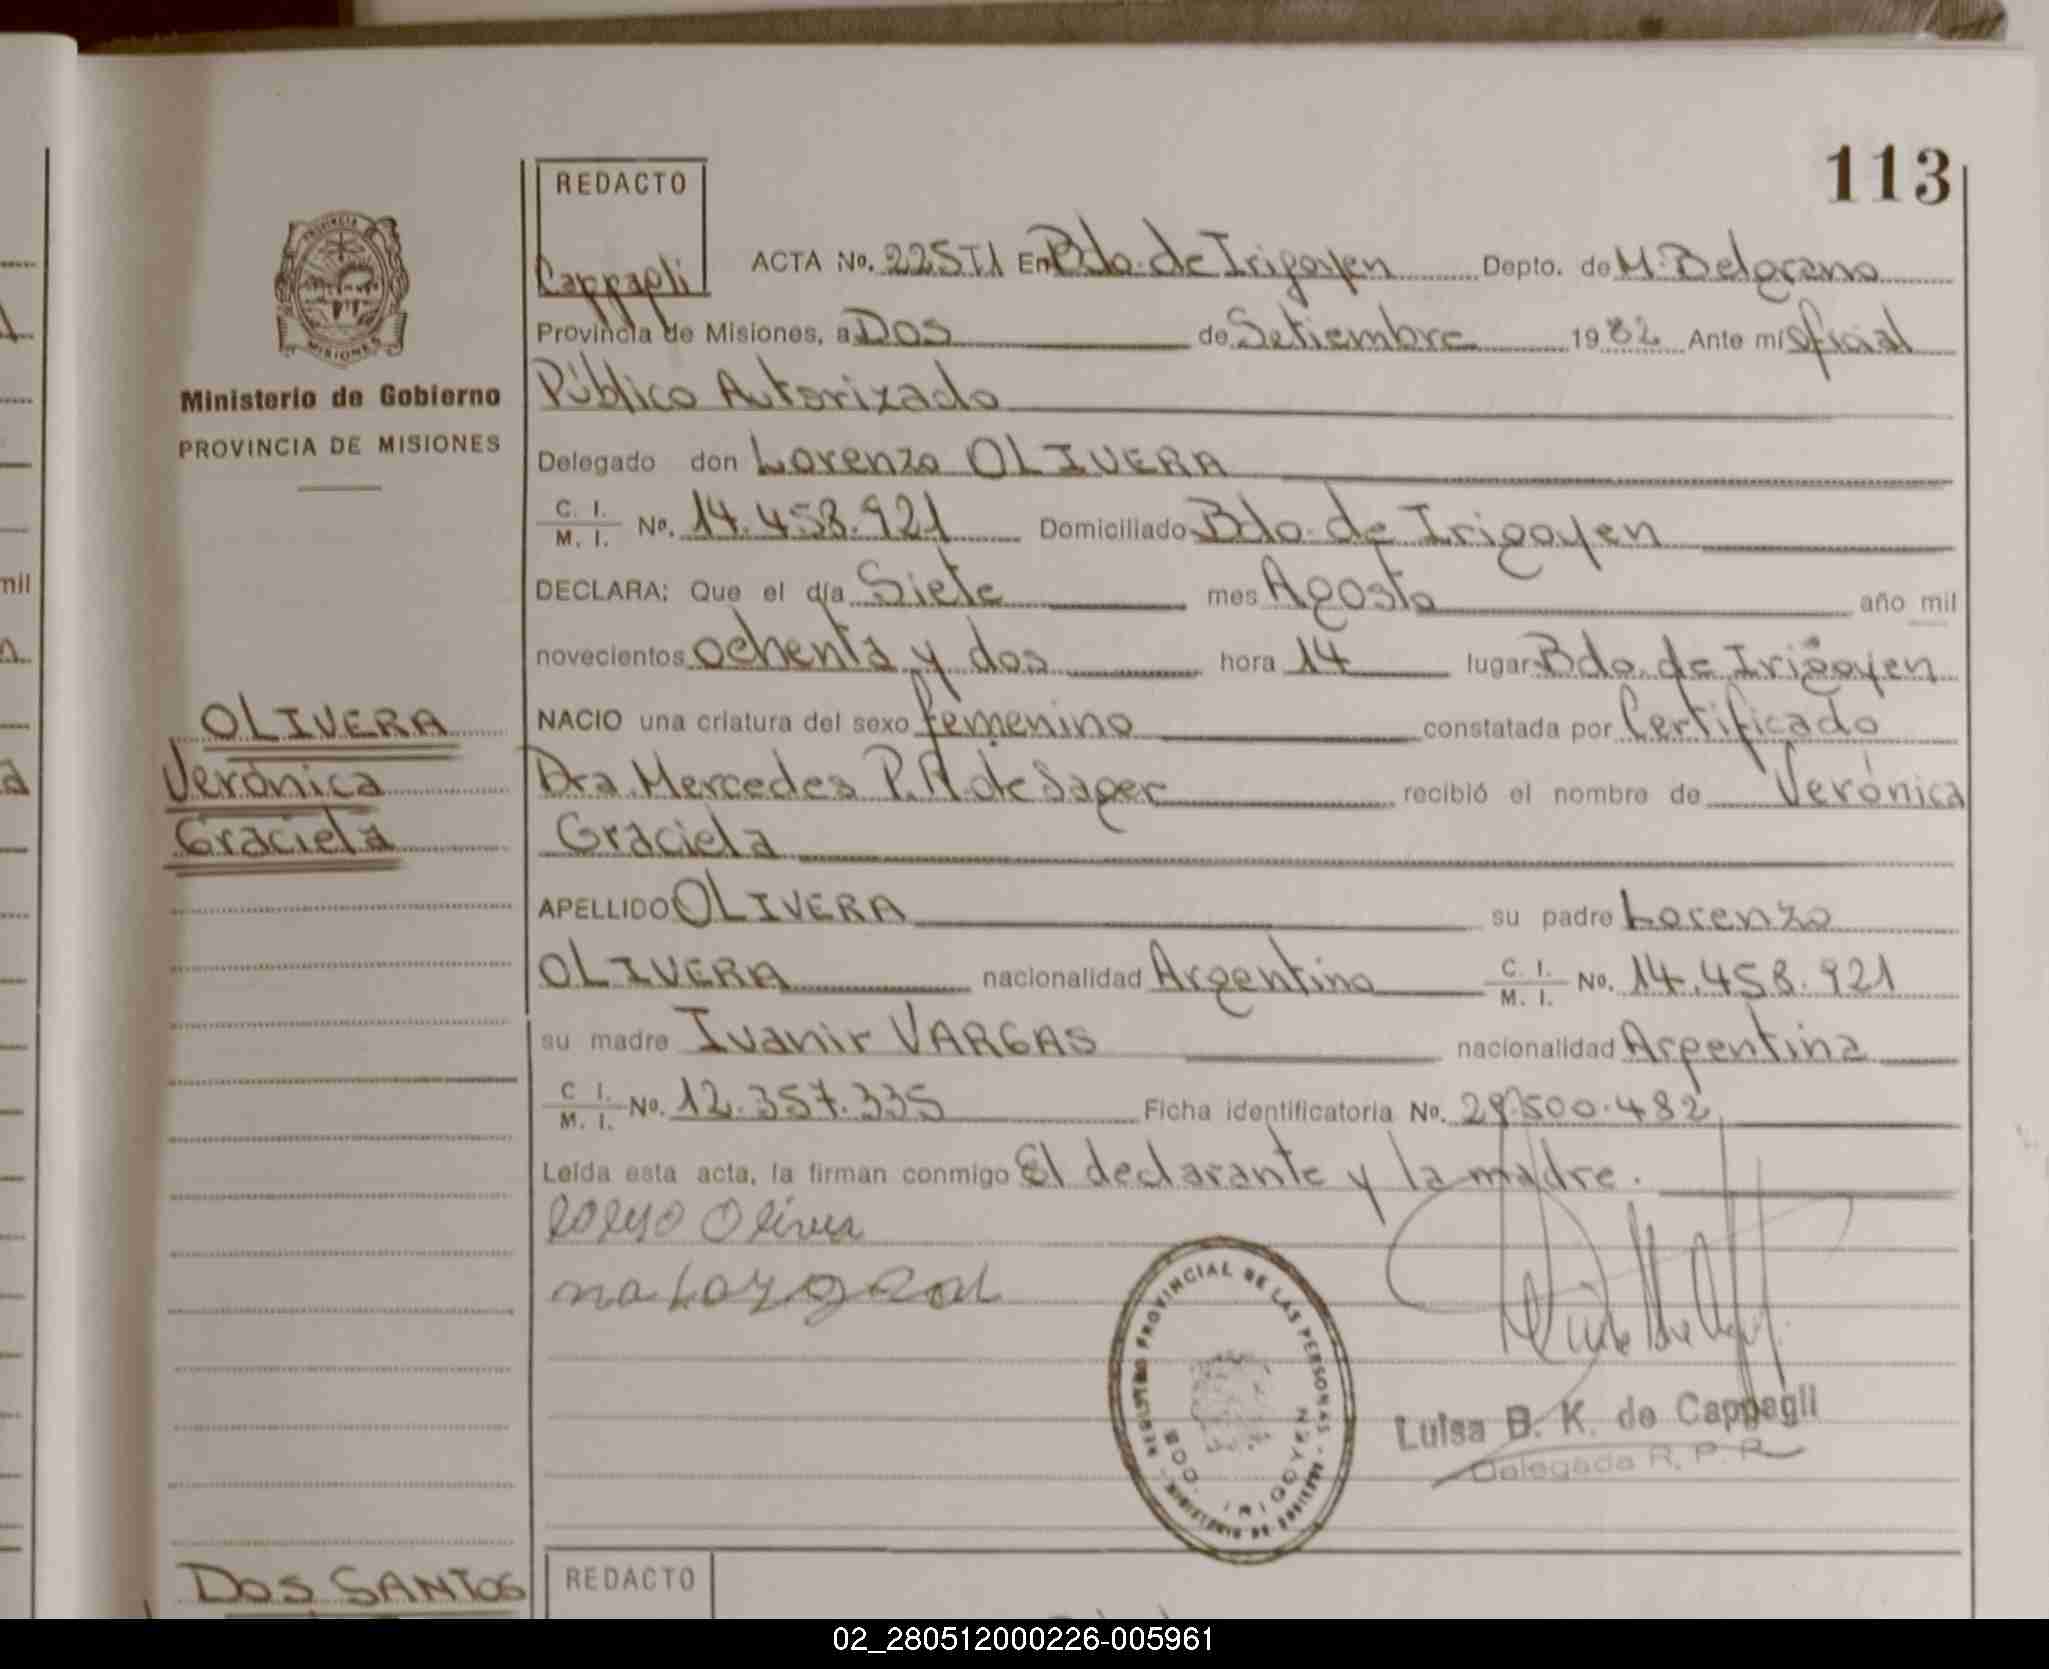 113
REDACTO
Cappagli
ACTA No. 225T1 En Bdo. de Irigoyen Depto. de M. Belgrano
Provincia de Misiones, a Dos de Setiembre 1982 Ante mí Oficial
Público Autorizado
Delegado don Lorenzo OLIVERA
C. I. M. I. No. 14.458.921 Domiciliado Bdo. de Irigoyen
DECLARA: Que el día Siete mes Agosto año mil
novecientos ochenta y dos hora 14 lugar Bdo. de Irigoyen
NACIO una criatura del sexo femenino constatada por Certificado
Dra. Mercedes P. R. de Sager recibió el nombre de Verónica
Graciela
APELLIDO OLIVERA su padre Lorenzo
OLIVERA nacionalidad Argentino C. I. M. I. No. 14.458.921
su madre Ivanir VARGAS nacionalidad Argentina
C I. M. I. No. 12.357.335 Ficha identificatoria No. 29.500.482
Leída esta acta, la firman conmigo El declarante y la madre.
PROVINCIA MISIONES
Ministerio de Gobierno
PROVINCIA DE MISIONES
OLIVERA
Verónica
Graciela
REGISTRO PROVINCIAL DE LAS PERSONAS - MINISTERIO DE GOBIERNO -
BDO. IRIGOYEN
Luisa B. K. de Cappagli
Delegada R. P. P.
DOS SANTOS
REDACTO
mil
02_280512000226-005961